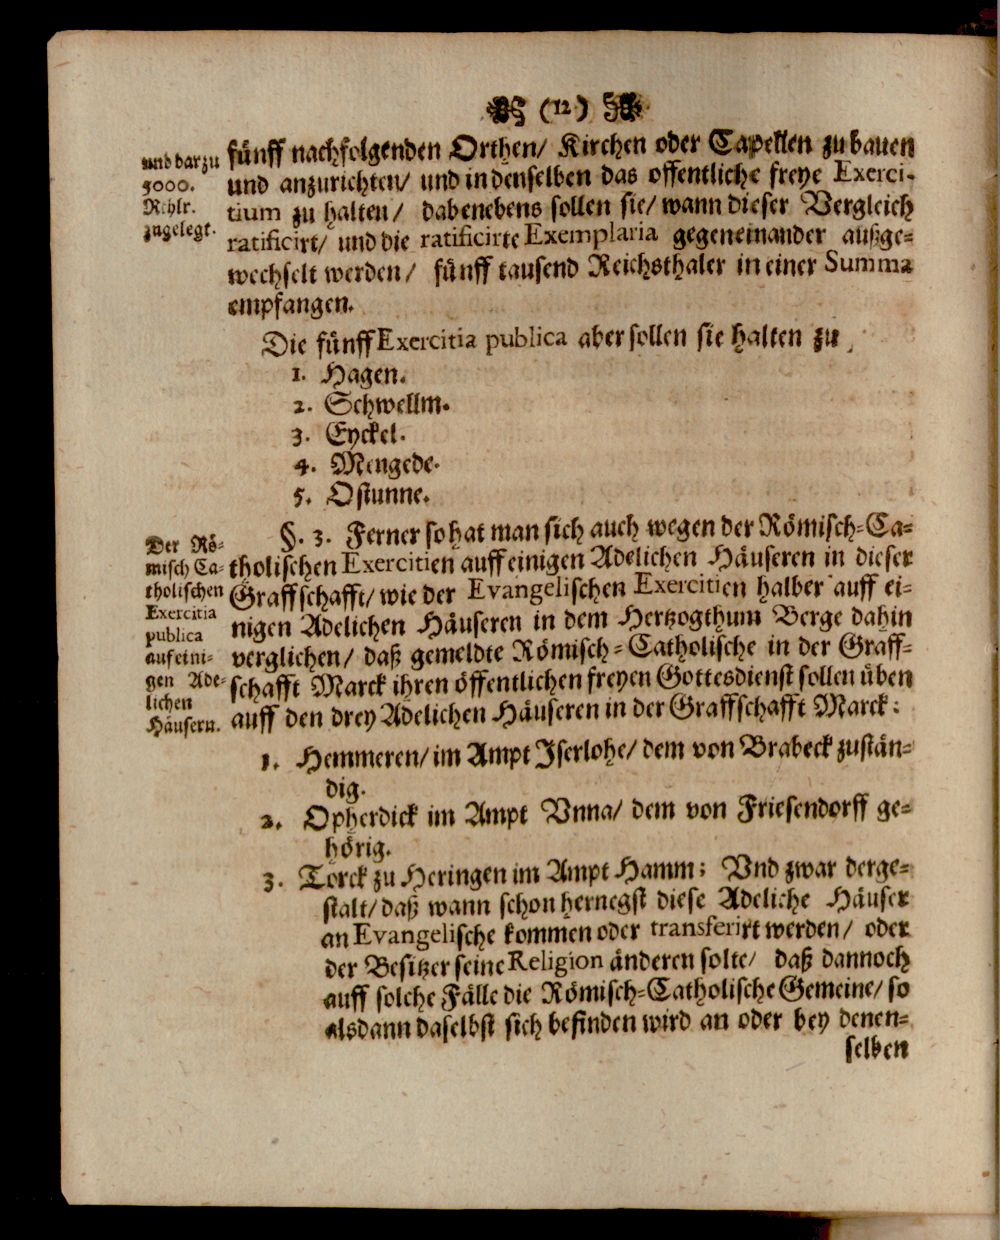 (12)
und darzu
5000.
Rthlr.
zugelegt.
fünff nachfolgenden Orthen/ Kirchen oder Capellen zu bauen
und anzurichten/ und in denselben das offentliche freye Exerci-
tium zu halten/ dabenebens sollen sie/ wann dieser Vergleich
ratificirt/ und die ratificirte Exemplaria gegeneinander außge-
wechselt werden/ fünff tausend Reichsthaler in einer Summa
empfangen.
Die fünff Exercitia publica aber sollen sie halten zu
1. Hagen.
2. Schwellm.
3. Eyckel.
4. Mengede.
5. Ostunne.
Der Rö-
misch Ca-
tholischen
Exercitia
publica
auf eini-
gen Ade-
lichen
Häusern.
§. 3. Ferner so hat man sich auch wegen der Römisch-Ca-
tholischen Exercitien auff einigen Adelichen Häuseren in dieser
Graffschafft/ wie der Evangelischen Exercitien halber auff ei-
nigen Adelichen Häuseren in dem Hertzogthum Berge dahin
verglichen/ daß gemeldte Römisch-Catholische in der Graff-
schafft Marck ihren öffentlichen freyen Gottesdienst sollen üben
auff den drey Adelichen Häuseren in der Graffschafft Marck:
1. Hemmeren/ im Ampt Iserlohe/ dem von Brabeck zustän-
dig.
2. Opherdick im Ampt Vnna/ dem von Friesendorff ge-
hörig.
3. Torck zu Heringen im Ampt Hamm; Vnd zwar derge-
stalt/ daß wann schon hernegst diese Adeliche Häuser
an Evangelische kommen oder transferirt werden/ oder
der Besitzer seine Religion änderen solte/ daß dannoch
auff solche Fälle die Römisch-Catholische Gemeine/ so
alsdann daselbst sich befinden wird an oder bey denen-
selben